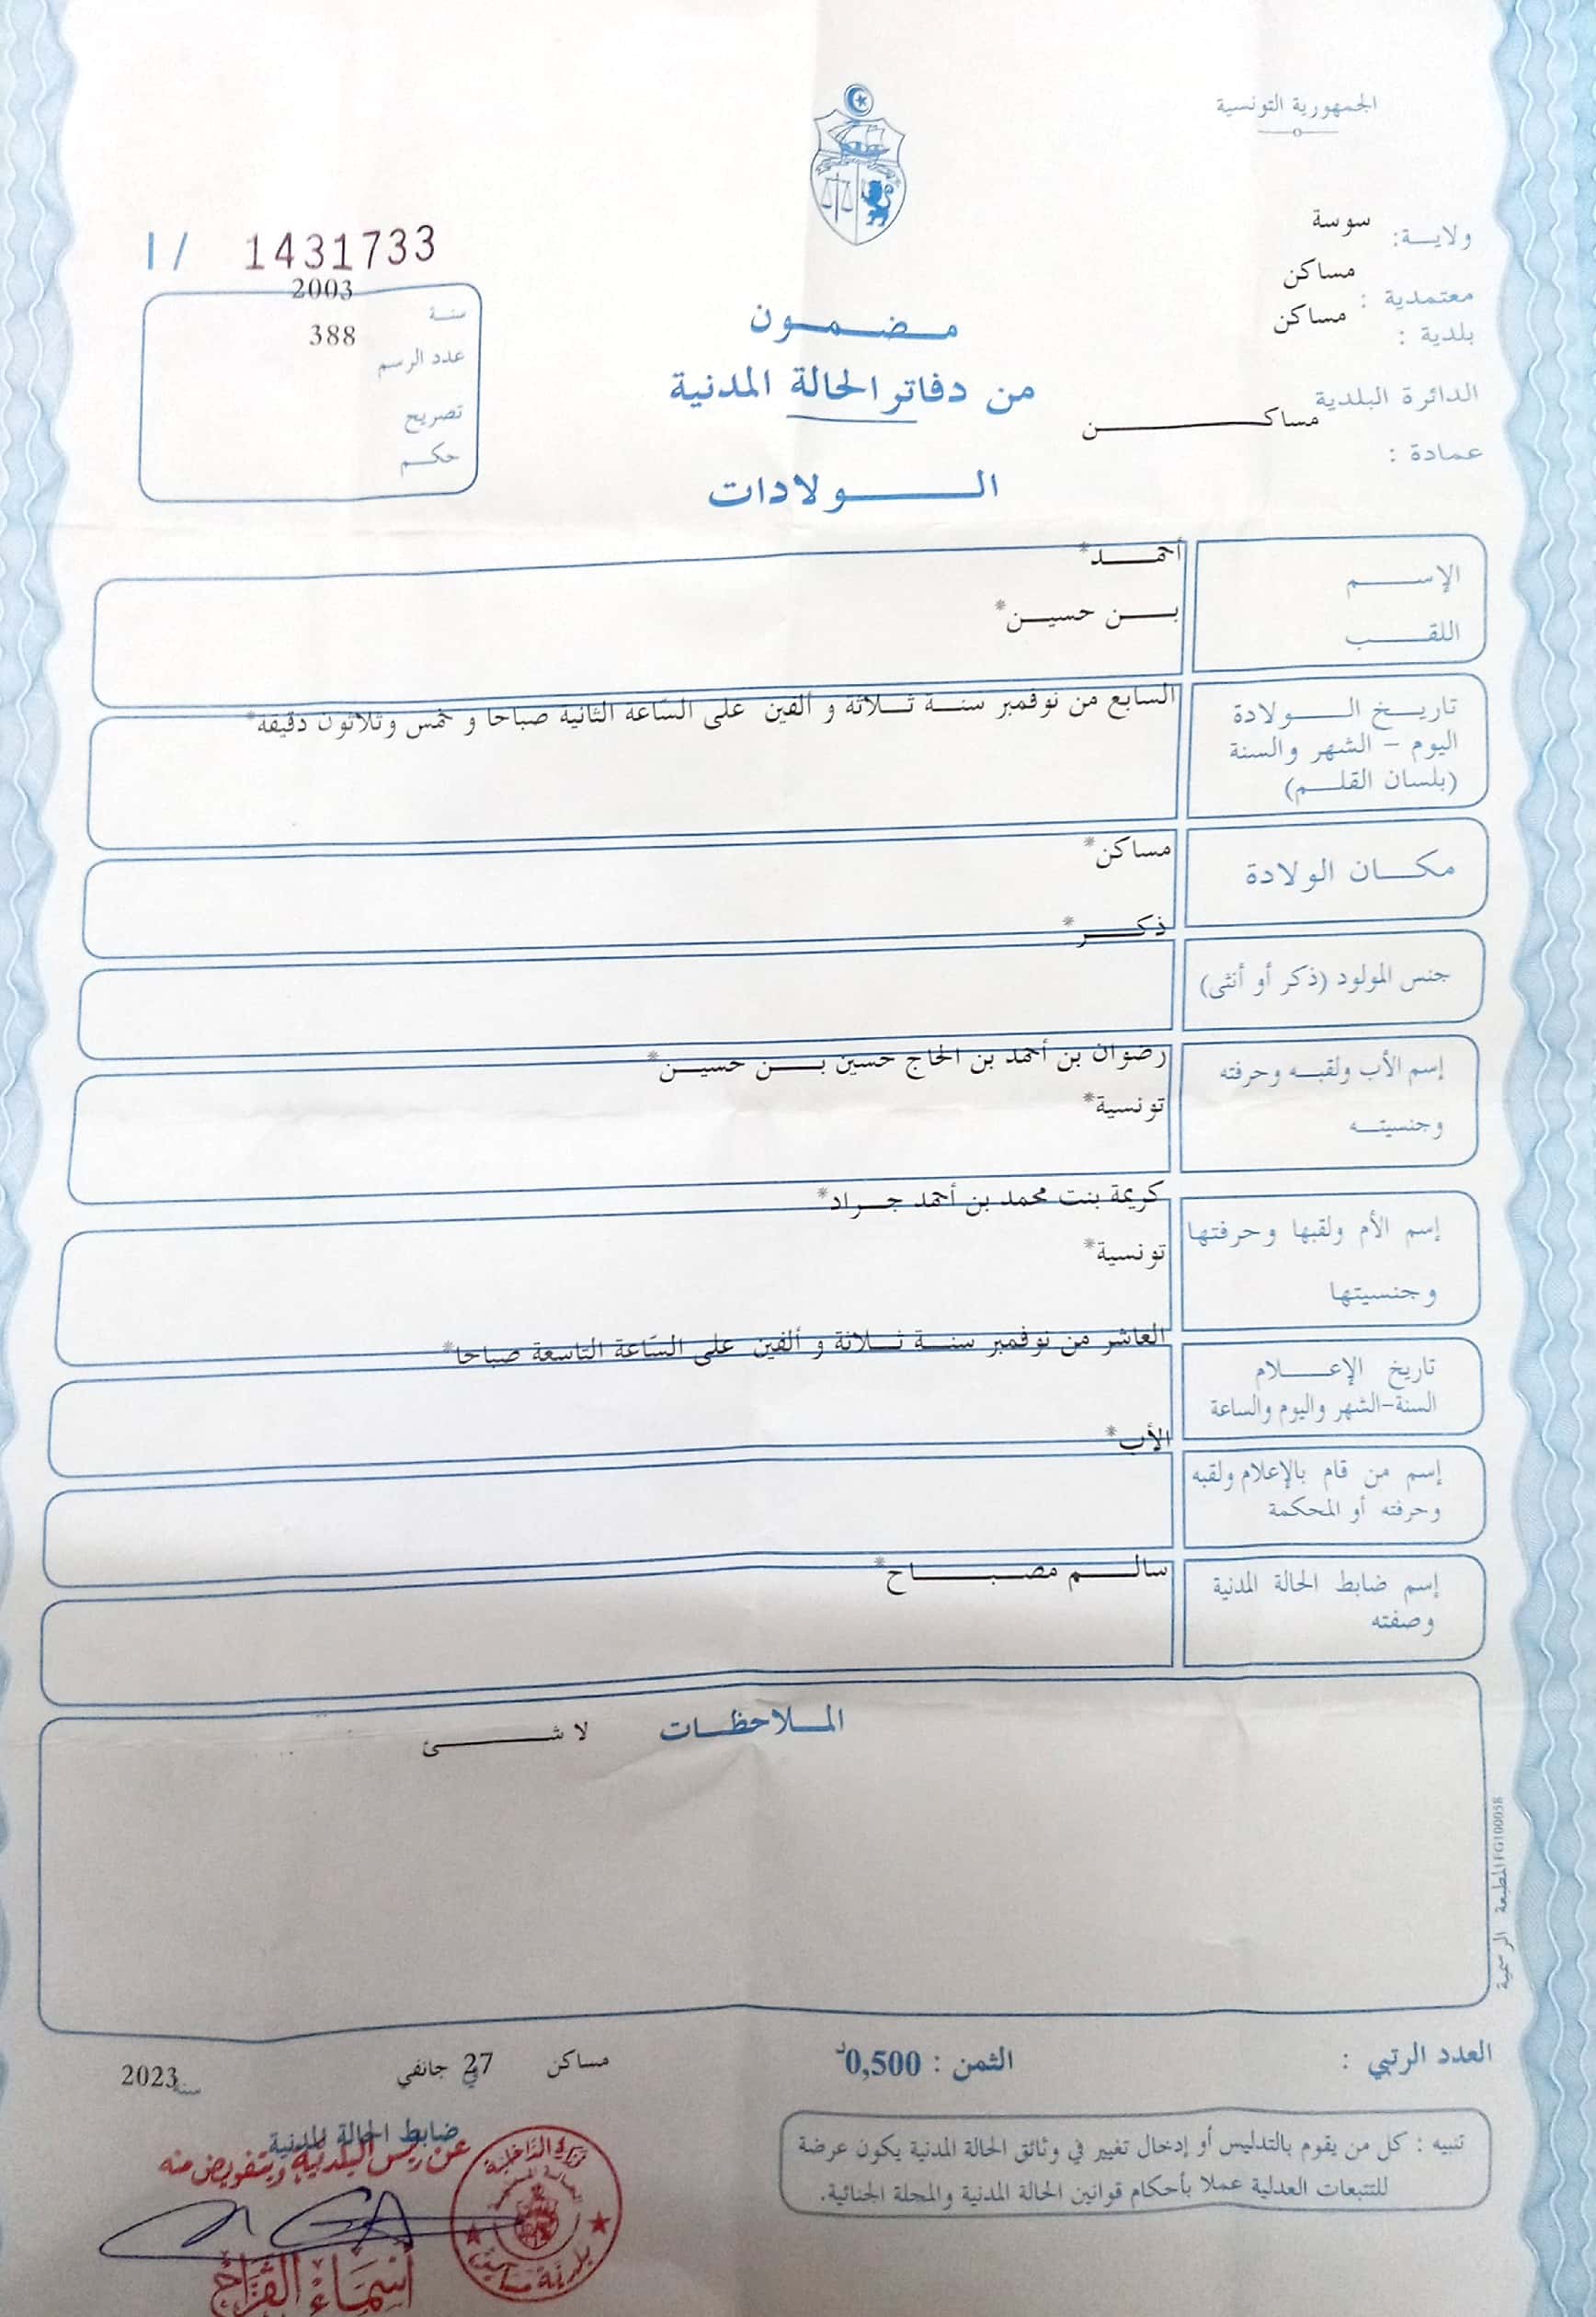 الجمهورية التونسية
ولاية: سوسة
معتمدية : مساكن
بلدية : مساكن
الدائرة البلدية مساكن
عمادة :
I / 1431733
سنة 2003
عدد الرسم 388
تصريح
حكم
مضمون
من دفاتر الحالة المدنية
الولادات
الإسم أحمد*
اللقب بن حسين*
تاريخ الولادة
اليوم - الشهر والسنة
(بلسان القلم)
السابع من نوفمبر سنة ثلاثة و ألفين على السّاعة الثانية صباحا و خمس وثلاثون دقيقة*
مكان الولادة مساكن*
جنس المولود (ذكر أو أنثى) ذكر*
إسم الأب ولقبه وحرفته رضوان بن أحمد بن الحاج حسين بن حسين*
وجنسيته تونسية*
إسم الأم ولقبها وحرفتها كريمة بنت محمد بن أحمد جراد*
وجنسيتها تونسية*
تاريخ الإعلام
السنة-الشهر واليوم والساعة
العاشر من نوفمبر سنة ثلاثة و ألفين على السّاعة التاسعة صباحا*
إسم من قام بالإعلام ولقبه
وحرفته أو المحكمة
الأب*
إسم ضابط الحالة المدنية
وصفته
سالم مصباح*
الملاحظات لا شئ
المطبعة الرسمية FG100058
العدد الرتبي :
الثمن : 0,500د
مساكن في 27 جانفي سنة 2023
تنبيه : كل من يقوم بالتدليس أو إدخال تغيير في وثائق الحالة المدنية يكون عرضة
للتتبعات العدلية عملا بأحكام قوانين الحالة المدنية والمجلة الجنائية.
ضابط الحالة المدنية
عن رئيس البلدية وبتفويض منه
وزارة الداخلية
بلدية مساكن
أسماء الفراج